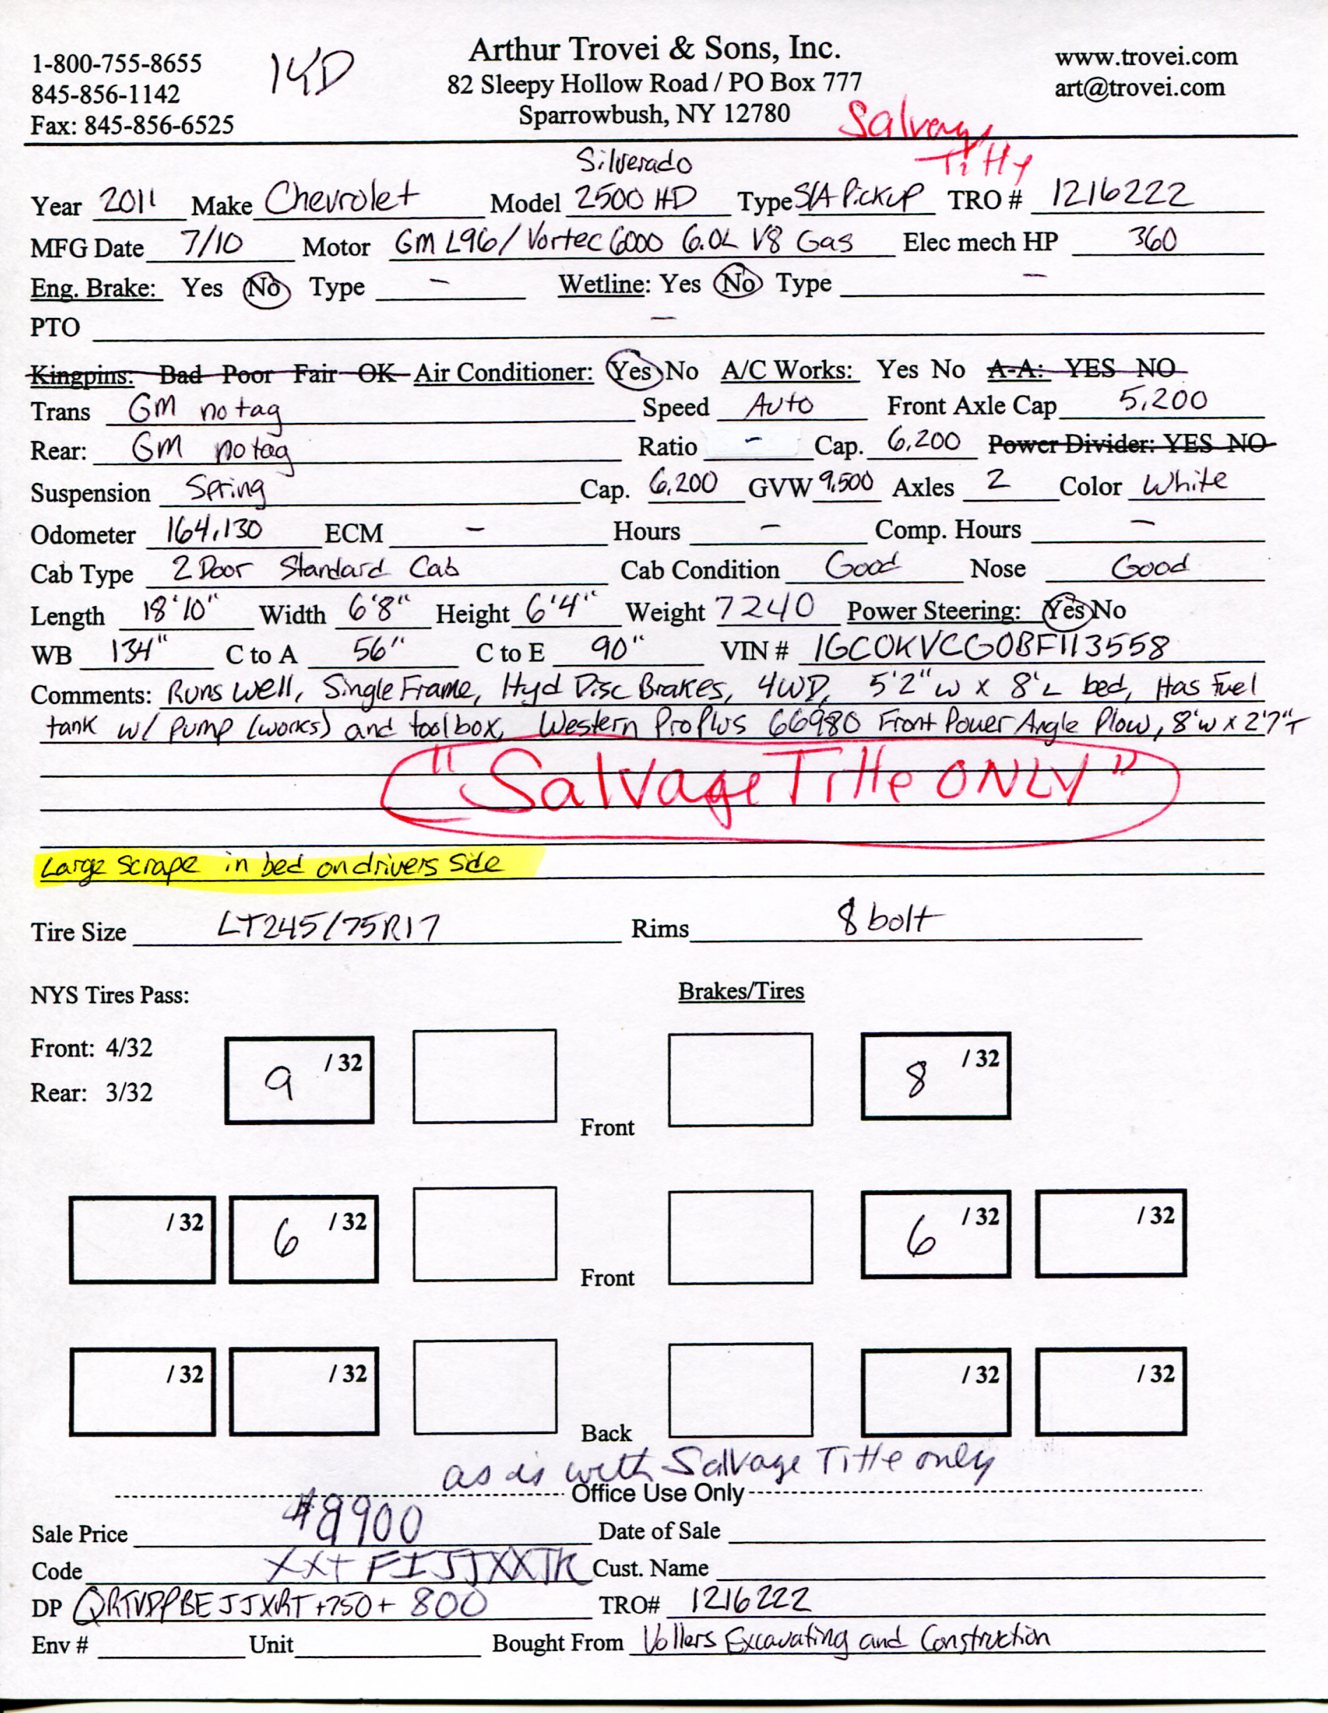 1-800-755-8655
845-856-1142
Fax: 845-856-6525
14D
Arthur Trovei & Sons, Inc.
82 Sleepy Hollow Road / PO Box 777
Sparrowbush, NY 12780
www.trovei.com
art@trovei.com
Silverado
Year 2011 Make Chevrolet Model 2500 HD Type S/A Pickup TRO # 1216222
MFG Date 7/10 Motor GM L96/ Vortec 6000 6.0L V8 Gas Elec mech HP 360
Eng. Brake: Yes No Type - Wetline: Yes No Type -
PTO -
Kingpins: Bad Poor Fair OK Air Conditioner: Yes No A/C Works: Yes No A-A: YES NO
Trans GM no tag Speed Auto Front Axle Cap 5,200
Rear: GM no tag Ratio - Cap. 6,200 Power Divider: YES NO
Suspension Spring Cap. 6,200 GVW 9,500 Axles 2 Color White
Odometer 164,130 ECM - Hours - Comp. Hours -
Cab Type 2 Door Standard Cab Cab Condition Good Nose Good
Length 18'10" Width 6'8" Height 6'4" Weight 7240 Power Steering: Yes No
WB 134" C to A 56" C to E 90" VIN # 1GC0KVCG0BF113558
Comments: Runs well, Single Frame, Hyd Disc Brakes, 4WD, 5'2"W x 8'L bed, Has Fuel
tank w/ pump (works) and toolbox, Western Pro Plus 66980 Front Power Angle Plow, 8'W x 2'7"T
"Salvage Title ONLY"
Large scrape in bed on drivers side
Tire Size LT245/75R17 Rims 8 bolt
NYS Tires Pass: Brakes/Tires
Front: 4/32
Rear: 3/32
9 /32 8 /32
Front
/32 6 /32 6 /32 /32
Front
/32 /32 /32 /32
Back
as is with Salvage Title only
Office Use Only
Sale Price $8900 Date of Sale
Code Cust. Name
DP QRTVDPBEJJXRT+750+ 800 TRO# 1216222
Env # Unit Bought From Vollers Excavating and Construction